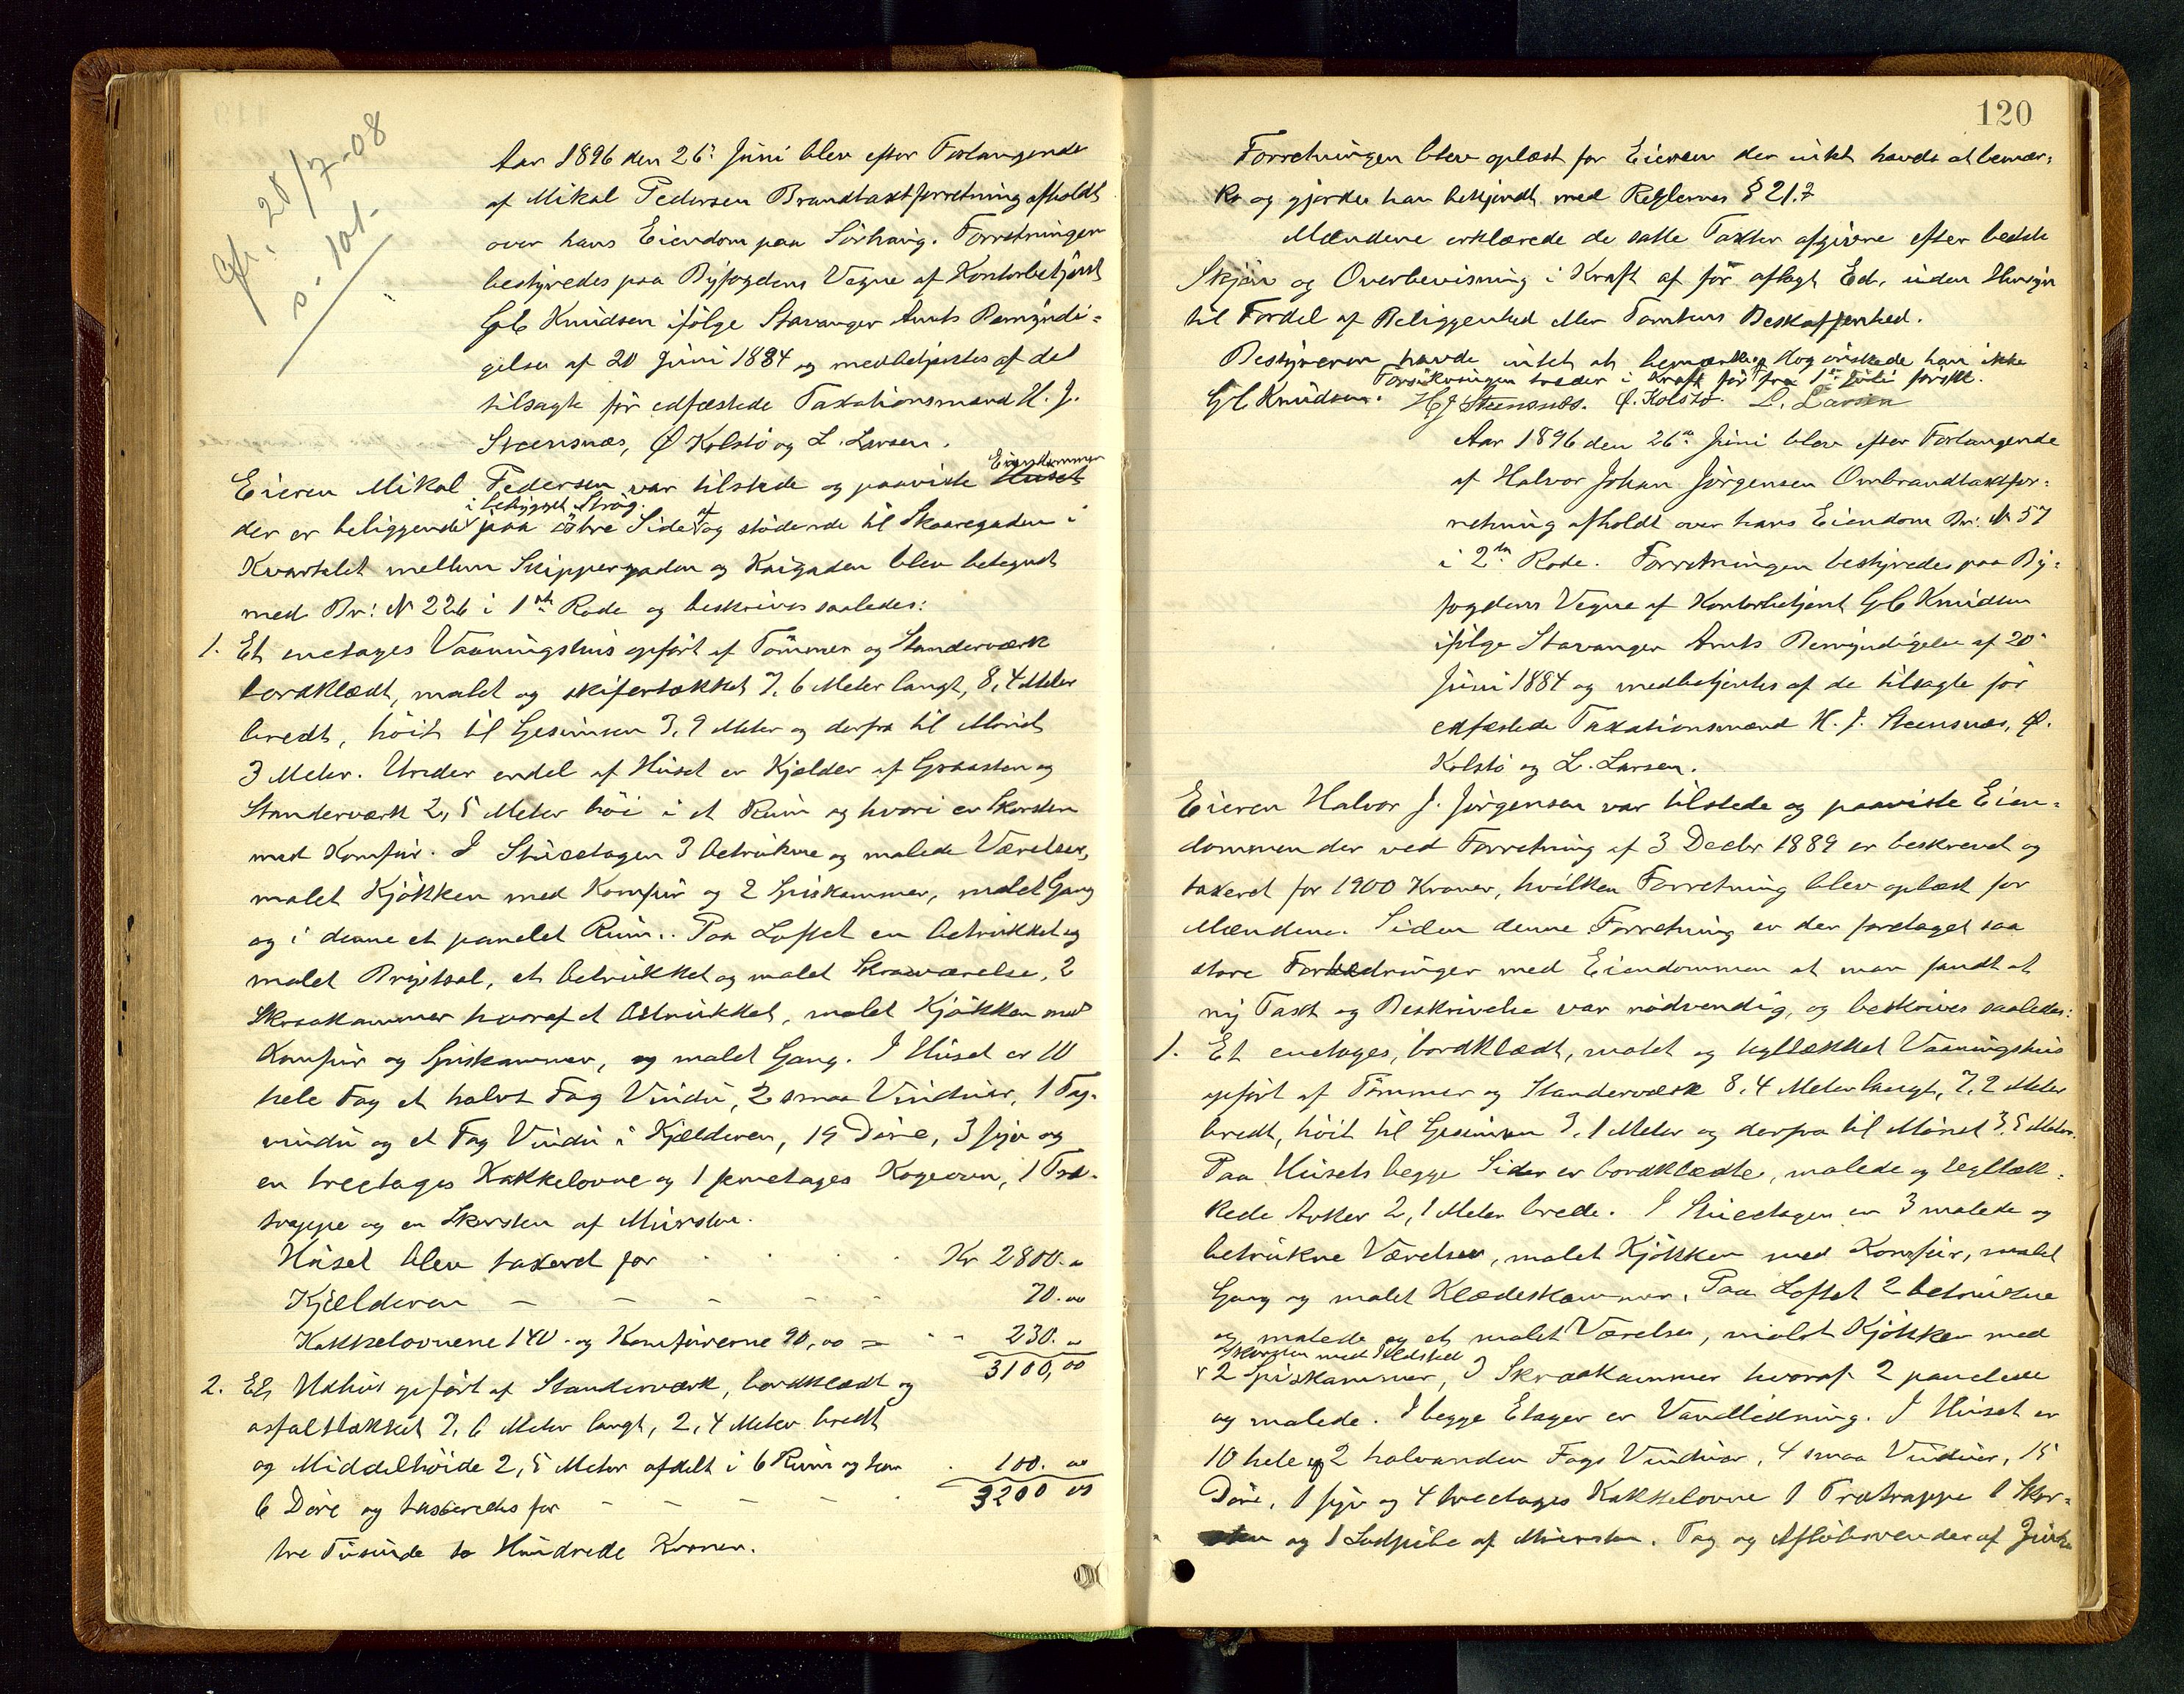 Gfr. 28/7-08
s. 101-
Aar 1896 den 26de Juni blev efter Forlangende
af Mikal Pedersen Brandtaxtforretning afholdt
over hans Eiendom paa Sørhaug. Forretningen
bestyredes paa Byfogdens Vegne af Kontorbetjent
G C Knudsen ifølge Stavanger Amts Bemyndi-
gelse af 20 Juni 1884 og medbetjentes af de
tilsagte før edfæstede Taxationsmænd H. J.
Steensnæs, Ø Kolstø og L. Larsen.
Eieren Mikal Pedersen var tilstede og paaviste Huset Eiendommen
i bebygget Strøg
der er beliggende paa østre Side af og stødende til Skaaregaden i
Kvartalet mellem Skippergaden og Kaigaden blev betegnet
med Br: № 226 i 1ste Rode og beskrives saaledes:
1. Et enetages Vaaningshus opført af Tømmer og Standerværk
bordklædt, malet og skifertækket 7,6 Meter langt, 8,4 Meter
bredt, høit til Gesimsen 3,9 Meter og derfra til Mønet
3 Meter. Under endel af Huset er Kjelder af Graasten og
Standerværk 2,5 Meter høi i et Rum og hvori er Skorsten
med Komfur. I Stueetagen 3 betrukne og malede Værelser,
malet Kjøkken med Komfur og 2 Spiskammer, malet Gang
og i denne et panelet Rum. Paa Loftet en betrukket og
malet Brystsal, et betrukket og malet Skraaværelse, 2
Skraakammer hvoraf et betrukket, malet Kjøkken med
Komfur og Spiskammer, og malet Gang. I Huset er 10
hele Fag et halvt Fag Vindu, 2 smaa Vinduer, 1 Tag-
vindu og et Fag Vindu i Kjælderen, 19 Døre, 3 fyr og
en treetages Kakkelovne og 1 femetages Kogeovn, 1 Træ-
trappe og en Skorsten af Mursten.
Huset blev taxeret for . . . . Kr 2800. "
Kjælderen – – – – – 70. 00
Kakkelovnene 140 - og Komfurerne 90,00 = " - 230. "
3100,00
2. Et Udhus opført af Standerværk, bordklædt og
asfalttækket 7,6 Meter langt, 2,4 Meter bredt
og Middelhøide 2,5 Meter afdelt i 6 Rum og har
100. 00
6 Døre og taxeredes for – – – –
3200 00
tre Tusinde to Hundrede Kroner.
120
Forretningen blev oplæst for Eieren der intet havde at bemær-
ke og gjordes han bekjendt med Reglernes § 21.7
Mændene erklærede de satte Taxter afgivne efter bedste
Skjøn og Overbevisning i Kraft af før aflagt Ed, uden Hensyn
til Fordel af Beliggenhed eller Tomtens Beskaffenhed.
Bestyreren havde intet at bemærke, dog ønskede han ikke
Forsikringen træder i Kraft før fra 1ste Juli førstk.
G C Knudsen. H J Steensnæs. Ø. Kolstø. L. Larsen
Aar 1896 den 26de Juni blev efter Forlangende
af Halvor Johan Jørgensen Ombrandtaxtfor-
retning afholdt over hans Eiendom Br: № 57
i 2den Rode. Forretningen bestyredes paa By-
fogdens Vegne af Kontorbetjent G C Knudsen
ifølge Stavanger Amts Bemyndigelse af 20
Juni 1884 og medbetjentes af de tilsagte før
edfæstede Taxationsmænd H. J. Steensnæs, Ø.
Kolstø og L. Larsen.
Eieren Halvor J. Jørgensen var tilstede og paaviste Eien-
dommen der ved Forretning af 3 Decbr 1889 er beskrevet og
taxeret for 1900 Kroner, hvilken Forretning blev oplæst for
Mændene. Siden denne Forretning er der foretaget saa
store Forbedringer med Eiendommen at man fandt at
ny Taxt og Beskrivelse var nødvendig, og beskrives saaledes:
1. Et enetages, bordklædt, malet og tegltækket Vaaningshus
opført af Tømmer og Standerværk 8,4 Meter langt, 7,2 Meter
bredt, høit til Gesimsen 3,1 Meter og derfra til Mønet 3,5 Meter.
Paa Husets begge Sider er bordklædte, malede og tegltæk-
kede Arker 2,1 Meter brede. I Stueetagen er 3 malede og
betrukne Værelser, malet Kjøkken med Komfur, malet
Gang og malet Klædeskammer. Paa Loftet 2 betrukne
og malede og et malet Værelse, malet Kjøkken med
Skorsten med Ildsted
2 Spiskammer, 3 Skraakammer hvoraf 2 panelede
og malede. I begge Etager er Vandledning. I Huset er
10 hele og 2 halvanden Fags Vinduer, 4 smaa Vinduer, 15
Døre, 1 fyr og 4 treetages Kakkelovne 1 Trætrappe 1 Skor-
sten og 1 Ludpibe af Mursten. Tag og Afløbsrender af Zink